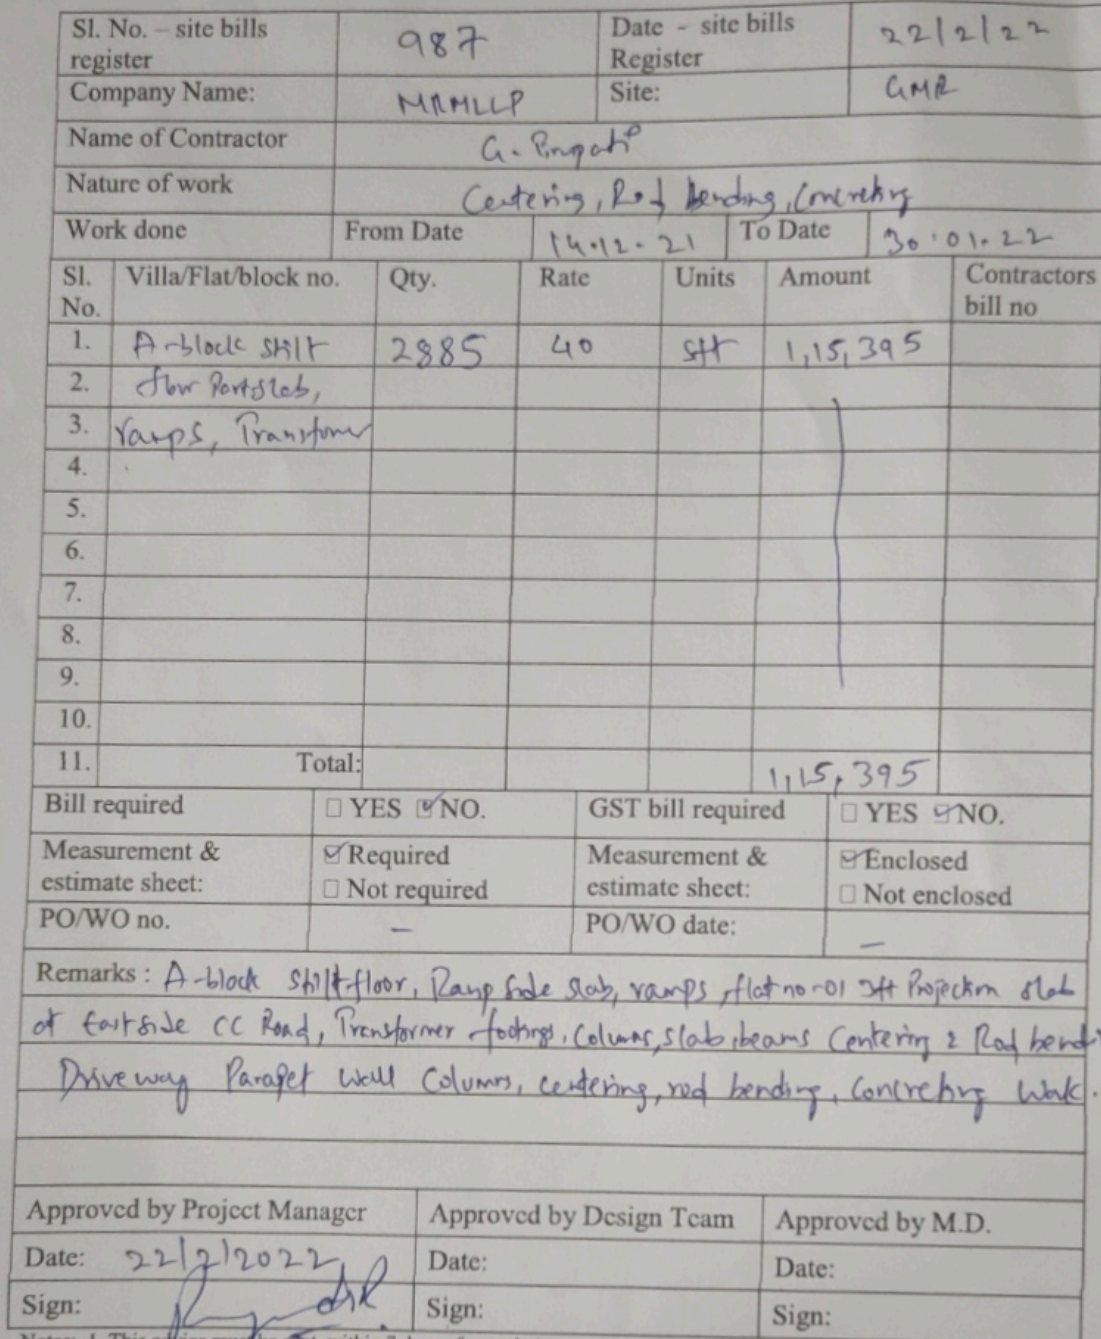 Sl. No. – site bills register 987 Date - site bills Register 22/2/22
Company Name: MRMLLP Site: GMR
Name of Contractor G.
Nature of work Centering, Rod bending, Concreting
Work done From Date 14.12.21 To Date 30.01.22
Sl. No. Villa/Flat/block no. Qty. Rate Units Amount Contractors bill no
1. A-block stilt 2885 40 sft 1,15,395
2. floor Part slab,
3. ramps, Transformer
4.
5.
6.
7.
8.
9.
10.
11. Total: 1,15,395
Bill required ☐ YES ☑ NO. GST bill required ☐ YES ☑ NO.
Measurement & estimate sheet: ☑ Required ☐ Not required Measurement & estimate sheet: ☑ Enclosed ☐ Not enclosed
PO/WO no. – PO/WO date: –
Remarks : A-block shilt floor, Ramp side slab, ramps, flat no-01 3ft Projection slab
of East side CC Road, Transformer footings, Columns, slab, beams Centering & Rod bend
Driveway Parapet wall Columns, centering, rod bending, Concreting Work.
Approved by Project Manager Approved by Design Team Approved by M.D.
Date: 22/2/2022 Date: Date:
Sign: Sign: Sign: